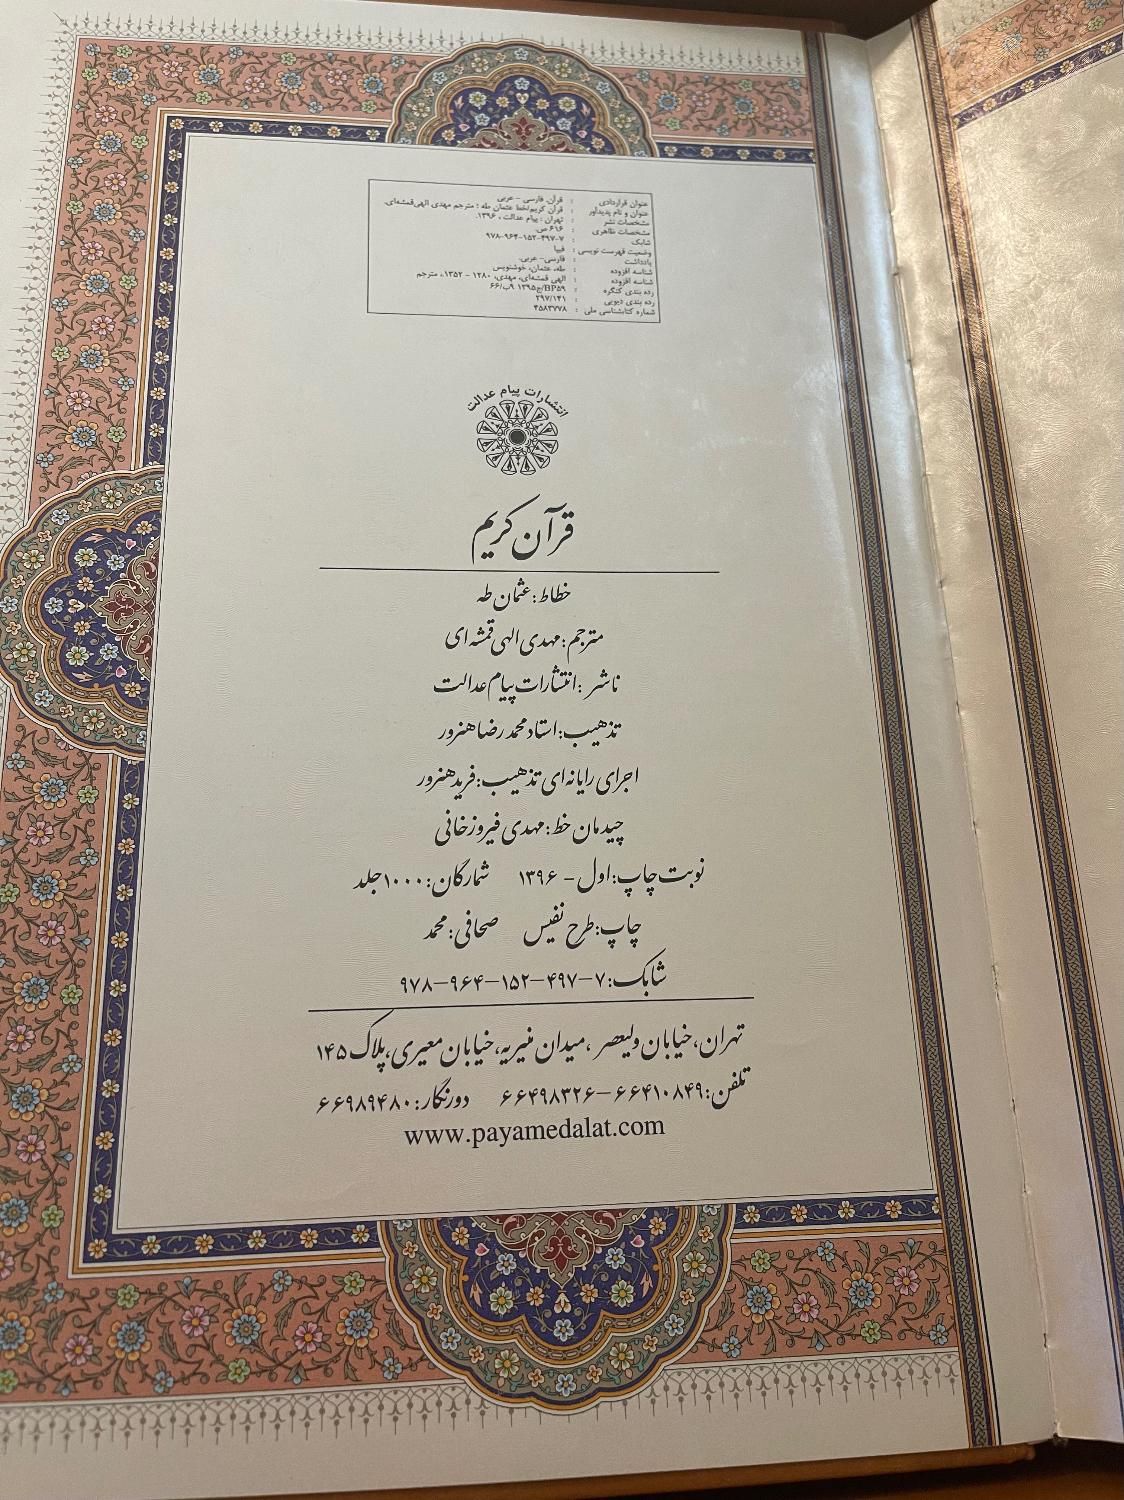 عنوان قراردادی : قرآن. فارسی - عربی
عنوان و نام پدیدآور : قرآن کریم/خط عثمان طه ؛ مترجم مهدی الهی‌قمشه‌ای.
مشخصات نشر : تهران : پیام عدالت ، ۱۳۹۶.
مشخصات ظاهری : ۶۱۶ ص.
شابک : ۹۷۸-۹۶۴-۱۵۲-۴۹۷-۷
وضعیت فهرست نویسی : فیپا
یادداشت : فارسی- عربی.
شناسه افزوده : طه، عثمان، خوشنویس
شناسه افزوده : الهی قمشه‌ای، مهدی، ۱۲۸۰ - ۱۳۵۲.، مترجم
رده بندی کنگره : BP۵۹/ج۱۳۹۵ ۹ب/۶۶
رده بندی دیویی : ۲۹۷/۱۴۱
شماره کتابشناسی ملی : ۴۵۸۳۷۷۸
انتشارات پیام عدالت
قرآن کریم
خطاط: عثمان طه
مترجم: مهدی الهی قمشه‌ای
ناشر: انتشارات پیام عدالت
تذهیب: استاد محمدرضا هنرور
اجرای رایانه‌ای تذهیب: فرید هنرور
چیدمان خط: مهدی فیروزخانی
نوبت چاپ: اول - ۱۳۹۶ شمارگان: ۱۰۰۰ جلد
چاپ: طرح نفیس صحافی: محمد
شابک: ۷-۴۹۷-۱۵۲-۹۶۴-۹۷۸
تهران، خیابان ولیعصر، میدان منیریه، خیابان معیری، پلاک ۱۴۵
تلفن: ۶۶۴۱۰۸۴۹-۶۶۴۹۸۳۲۶ دورنگار: ۶۶۹۸۹۴۸۰
www.payamedalat.com